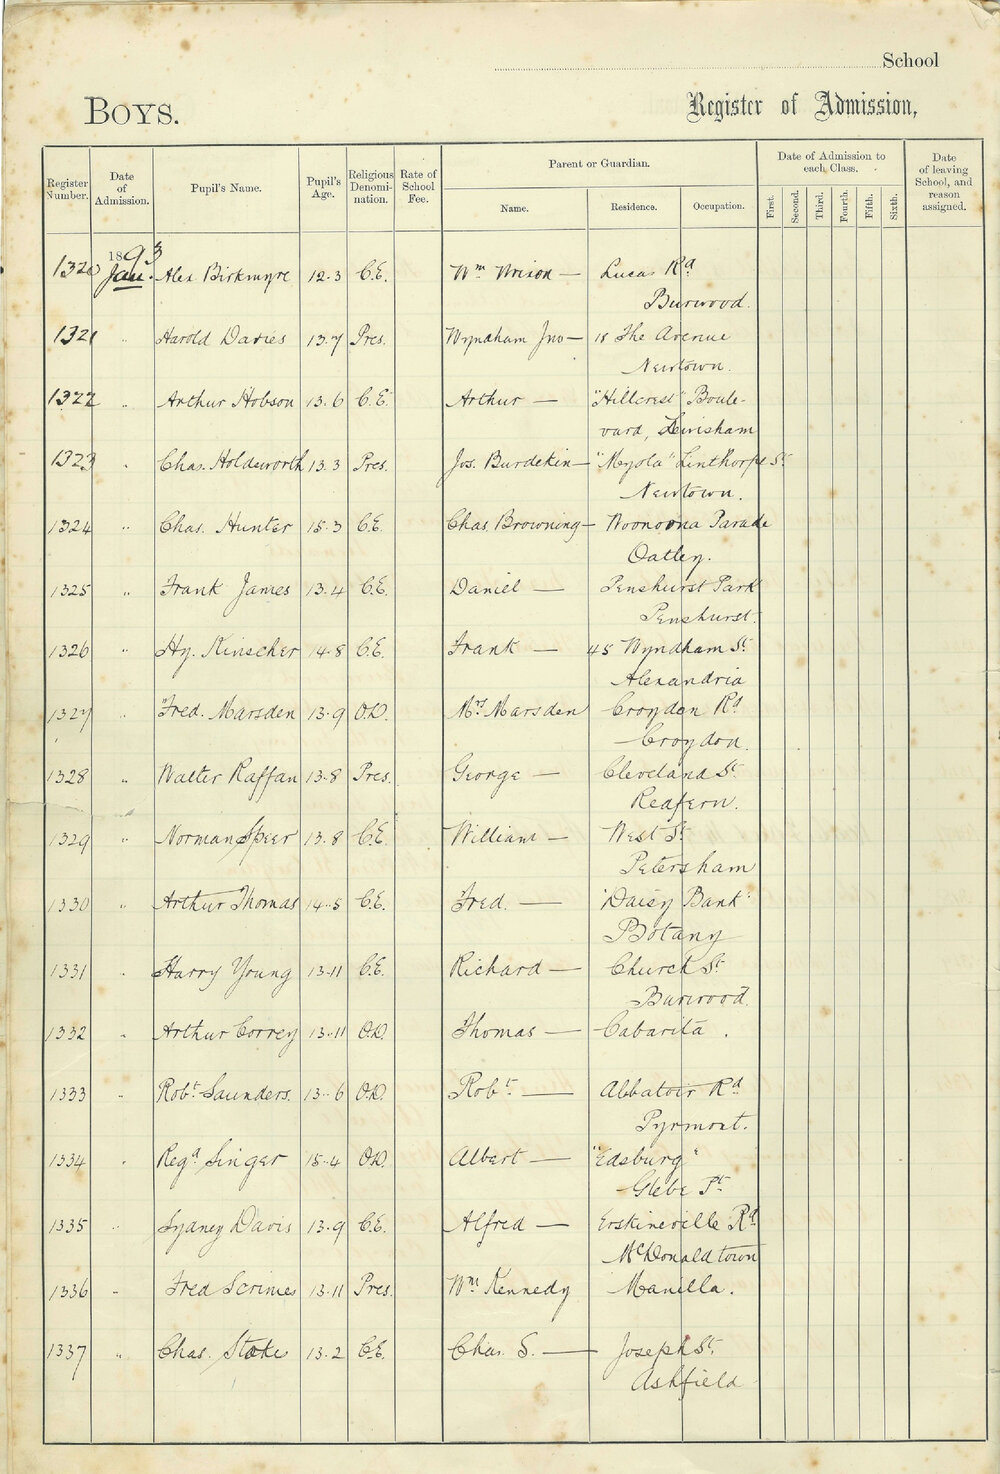 School
BOYS.
Register of Admission,
Register Number.
Date of Admission.
Pupil's Name.
Pupil's Age.
Religious Denomi-nation.
Rate of School Fee.
Parent or Guardian.
Name.
Residence.
Occupation.
Date of Admission to each Class.
First.
Second.
Third.
Fourth.
Fifth.
Sixth.
Date of leaving School, and reason assigned.
1893
1320 Jan. Alex Birkmyre 12·3 C.E. Wm Wrixon — Lucas Rd
Burwood.
1321 " Harold Davies 13·7 Pres. Wyndham Jno — 18 The Avenue
Newtown.
1322 " Arthur Hobson 13·6 C.E. Arthur — "Hillcrest" Boule-
vard, Lewisham
1323 " Chas. Holdsworth 13·3 Pres. Jos. Burdekin — "Myola" Linthorpe St
Newtown.
1324 " Chas. Hunter 15·3 C.E. Chas Browning — Woonoona Parade
Oatley.
1325 " Frank James 13·4 C.E. Daniel — Penshurst Park
Penshurst.
1326 " Hy. Kinscher 14·8 C.E. Frank — 45 Wyndham St
Alexandria
1327 " Fred. Marsden 13·9 O.D. Mrs Marsden Croydon Rd
Croydon.
1328 " Walter Raffan 13·8 Pres. George — Cleveland St
Redfern.
1329 " Norman Speer 13·8 C.E. William — West St
Petersham
1330 " Arthur Thomas 14·5 C.E. Fred. — "Daisy Bank"
Botany
1331 " Harry Young 13·11 C.E. Richard — Church St
Burwood.
1332 " Arthur Correy 13·11 O.D. Thomas — Cabarita.
1333 " Robt Saunders. 13·6 O.D. Robt — Abbatoir Rd
Pyrmont.
1334 " Regd Singer 15·4 O.D. Albert — "Edsburg"
Glebe Pt
1335 " Sydney Davis 13·9 C.E. Alfred — Erskineville Rd
McDonaldtown
1336 " Fred Scrimes 13·11 Pres. Wm Kennedy Manilla.
1337 " Chas. Stoke 13·2 C.E. Chas. S. — Joseph St.
Ashfield